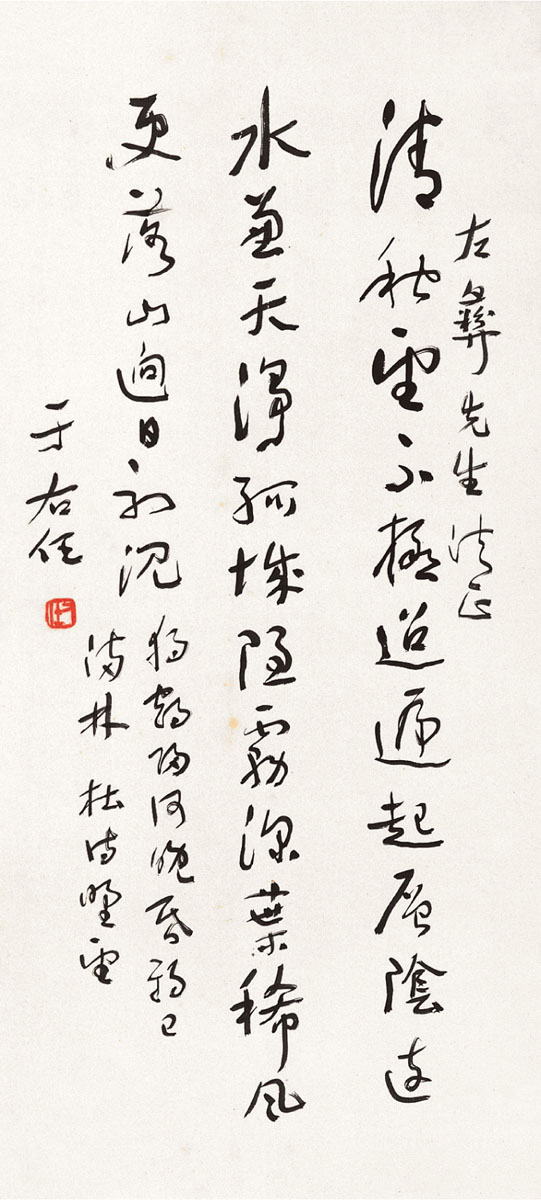 左彝先生法正
清秋望不極迢遞起層陰遠
水兼天淨孤城隱霧深葉稀風
更落山迥日初沉
獨鶴歸何晚昏鴉已
滿林 杜詩野望
于右任